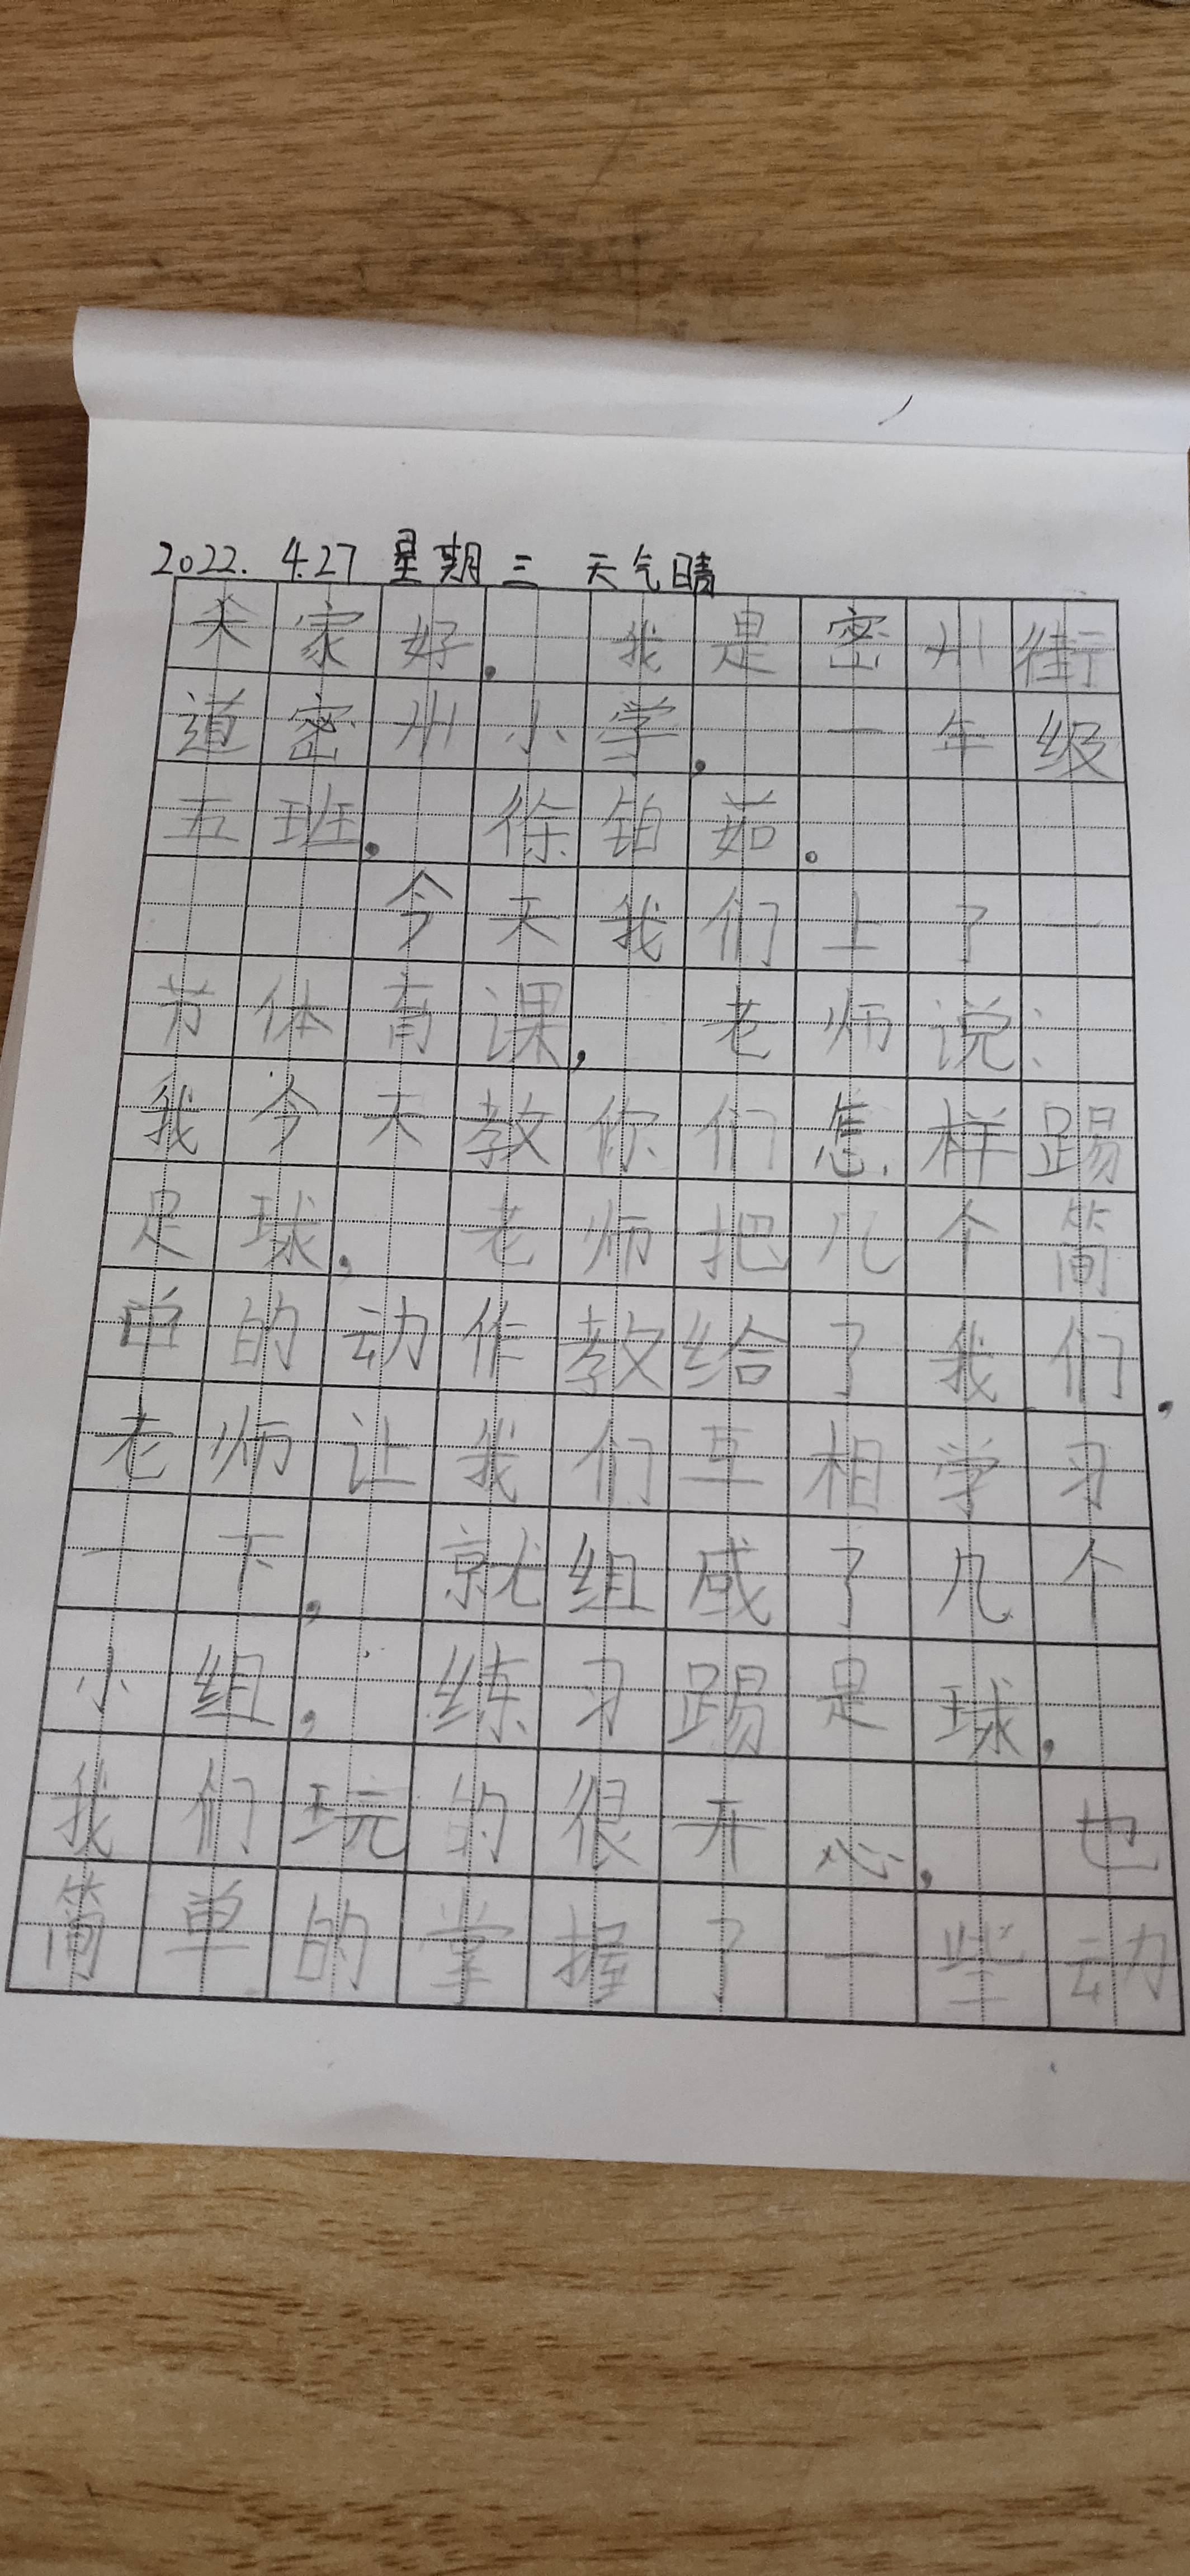 2022. 4.27 星期三 天气晴
大家好. 我是密州街
道密州小学, 一年级
五班. 徐铂茹。
今天我们上了一
节体育课, 老师说:
我今天教你们怎样踢
足球, 老师把几个简
单的动作教给了我们,
老师让我们互相学习
一下, 就组成了几个
小组, 练习踢足球,
我们玩的很开心, 也
简单的掌握了一些动